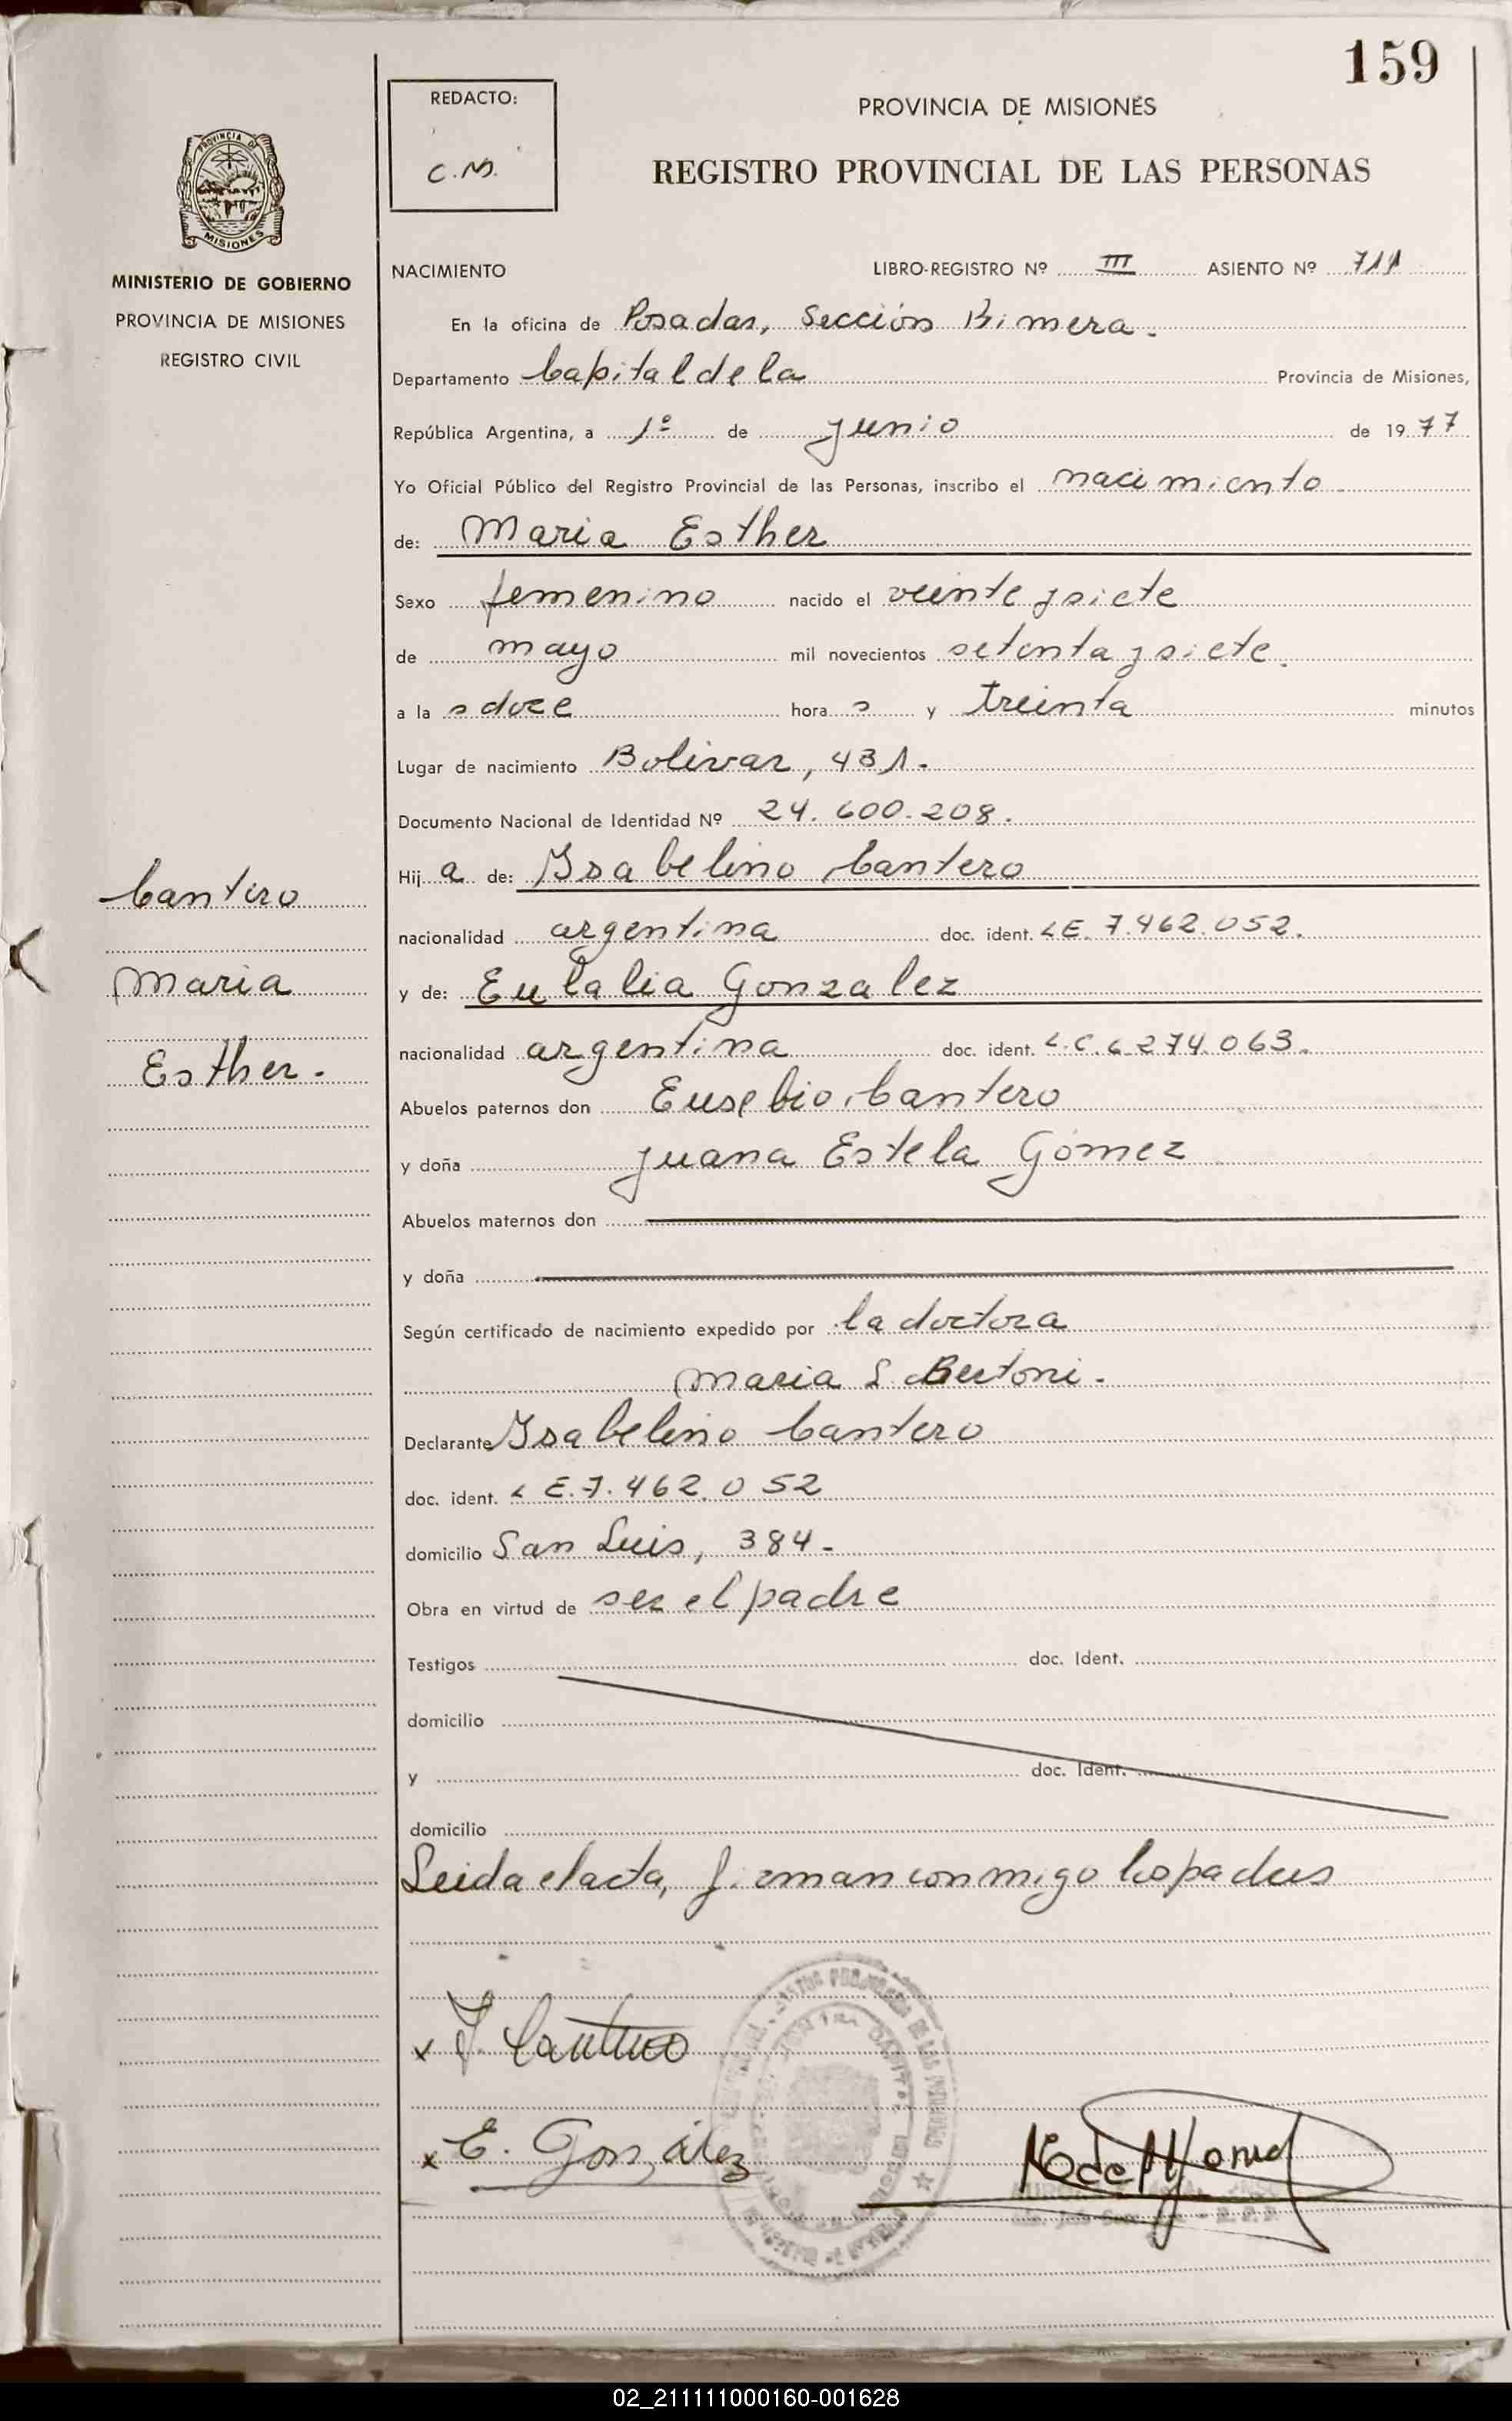 159
REDACTO:
C.M.
PROVINCIA DE MISIONES
REGISTRO PROVINCIAL DE LAS PERSONAS
PROVINCIA DE
MISIONES
MINISTERIO DE GOBIERNO
PROVINCIA DE MISIONES
REGISTRO CIVIL
NACIMIENTO LIBRO-REGISTRO Nº III ASIENTO Nº 711
En la oficina de Posadas, Sección Primera.
Departamento Capital de la Provincia de Misiones,
República Argentina, a 1º de junio de 1977
Yo Oficial Público del Registro Provincial de las Personas, inscribo el nacimiento
de: Maria Esther
Sexo femenino nacido el veinte y siete
de mayo mil novecientos setenta y siete.
a la s doce hora s y treinta minutos
Lugar de nacimiento Bolivar, 431.
Documento Nacional de Identidad Nº 24.600.208.
Hij a de: Isabelino Cantero
nacionalidad argentina doc. ident. LE. 7.462.052.
y de: Eulalia Gonzalez
nacionalidad argentina doc. ident. L.C. 6.274.063.
Abuelos paternos don Eusebio Cantero
y doña Juana Estela Gómez
Abuelos maternos don
y doña
Según certificado de nacimiento expedido por la doctora
Maria S Bertoni.
Declarante Isabelino Cantero
doc. ident. L E. 7.462.052
domicilio San Luis, 384.
Obra en virtud de ser el padre
Testigos doc. Ident.
domicilio
y doc. Ident.
domicilio
Leida el acta, firman conmigo los padres
Cantero
Maria
Esther.
x I. Cantero
x E. González
02_211111000160-001628